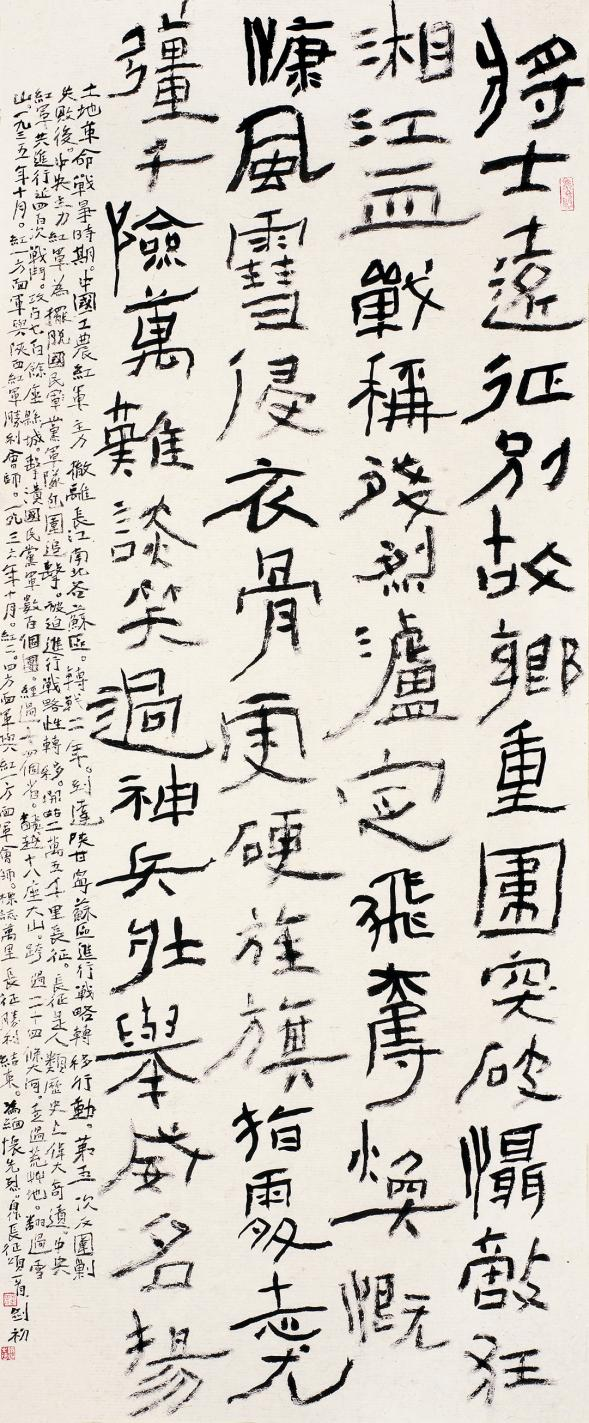 將士遠征別故鄉重圍突破懾敵狂
湘江血戰稱殘烈瀘定飛奪煥慨
慷風雪侵衣骨更硬旌旗指處志尤
彊千險萬難談笑過神兵壯舉威名揚
土地革命戰爭時期。中國工農紅軍主力撤離長江南北各蘇區。轉戰二年。到達陝甘寧蘇區進行戰略轉移行動。第五次反圍剿
失敗後。中央主力紅軍為擺脫國民軍黨軍隊包圍追擊。被迫進行戰略性轉移。開始二萬五千里長征。長征是人類歷史上偉大奇蹟。中央
紅軍共進行近四百次戰鬥。攻占七百餘座縣城。擊潰國民黨軍數百個團。經過一十四個省。翻越十八座大山。跨過二十四條大河。走過荒艸地。翻過雪
山。一九三五年十月。紅一方面軍與陝西紅軍勝利會師。一九三六年十月。紅二。四方面軍與紅一方面軍會師。標誌萬里長征勝利結束。為緬懷先烈。長征頌一首 劍初